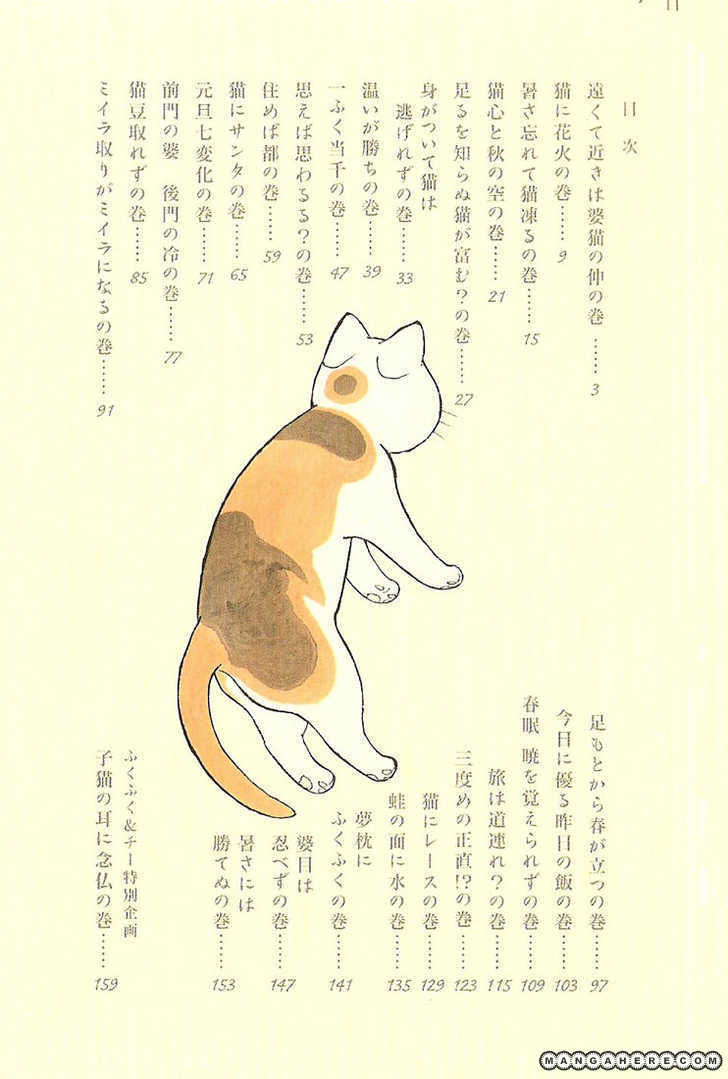 目次
遠くて近きは婆猫の仲の巻……3
猫に花火の巻……9
暑さ忘れて猫凍るの巻……15
猫心と秋の空の巻……21
足るを知らぬ猫が富む？の巻……27
身がついて猫は
逃げれずの巻……33
温いが勝ちの巻……39
一ふく当千の巻……47
思えば思わるる？の巻……53
住めば都の巻……59
猫にサンタの巻……65
元旦七変化の巻……71
前門の婆　後門の冷の巻……77
猫豆取れずの巻……85
ミイラ取りがミイラになるの巻……91
足もとから春が立つの巻……97
今日に優る昨日の飯の巻……103
春眠　暁を覚えられずの巻……109
旅は道連れ？の巻……115
三度めの正直!?の巻……123
猫にレースの巻……129
蛙の面に水の巻……135
夢枕に
ふくふくの巻……141
婆目は
忍べずの巻……147
暑さには
勝てぬの巻……153
ふくふく＆チー特別企画
子猫の耳に念仏の巻……159
MANGAHERE.COM